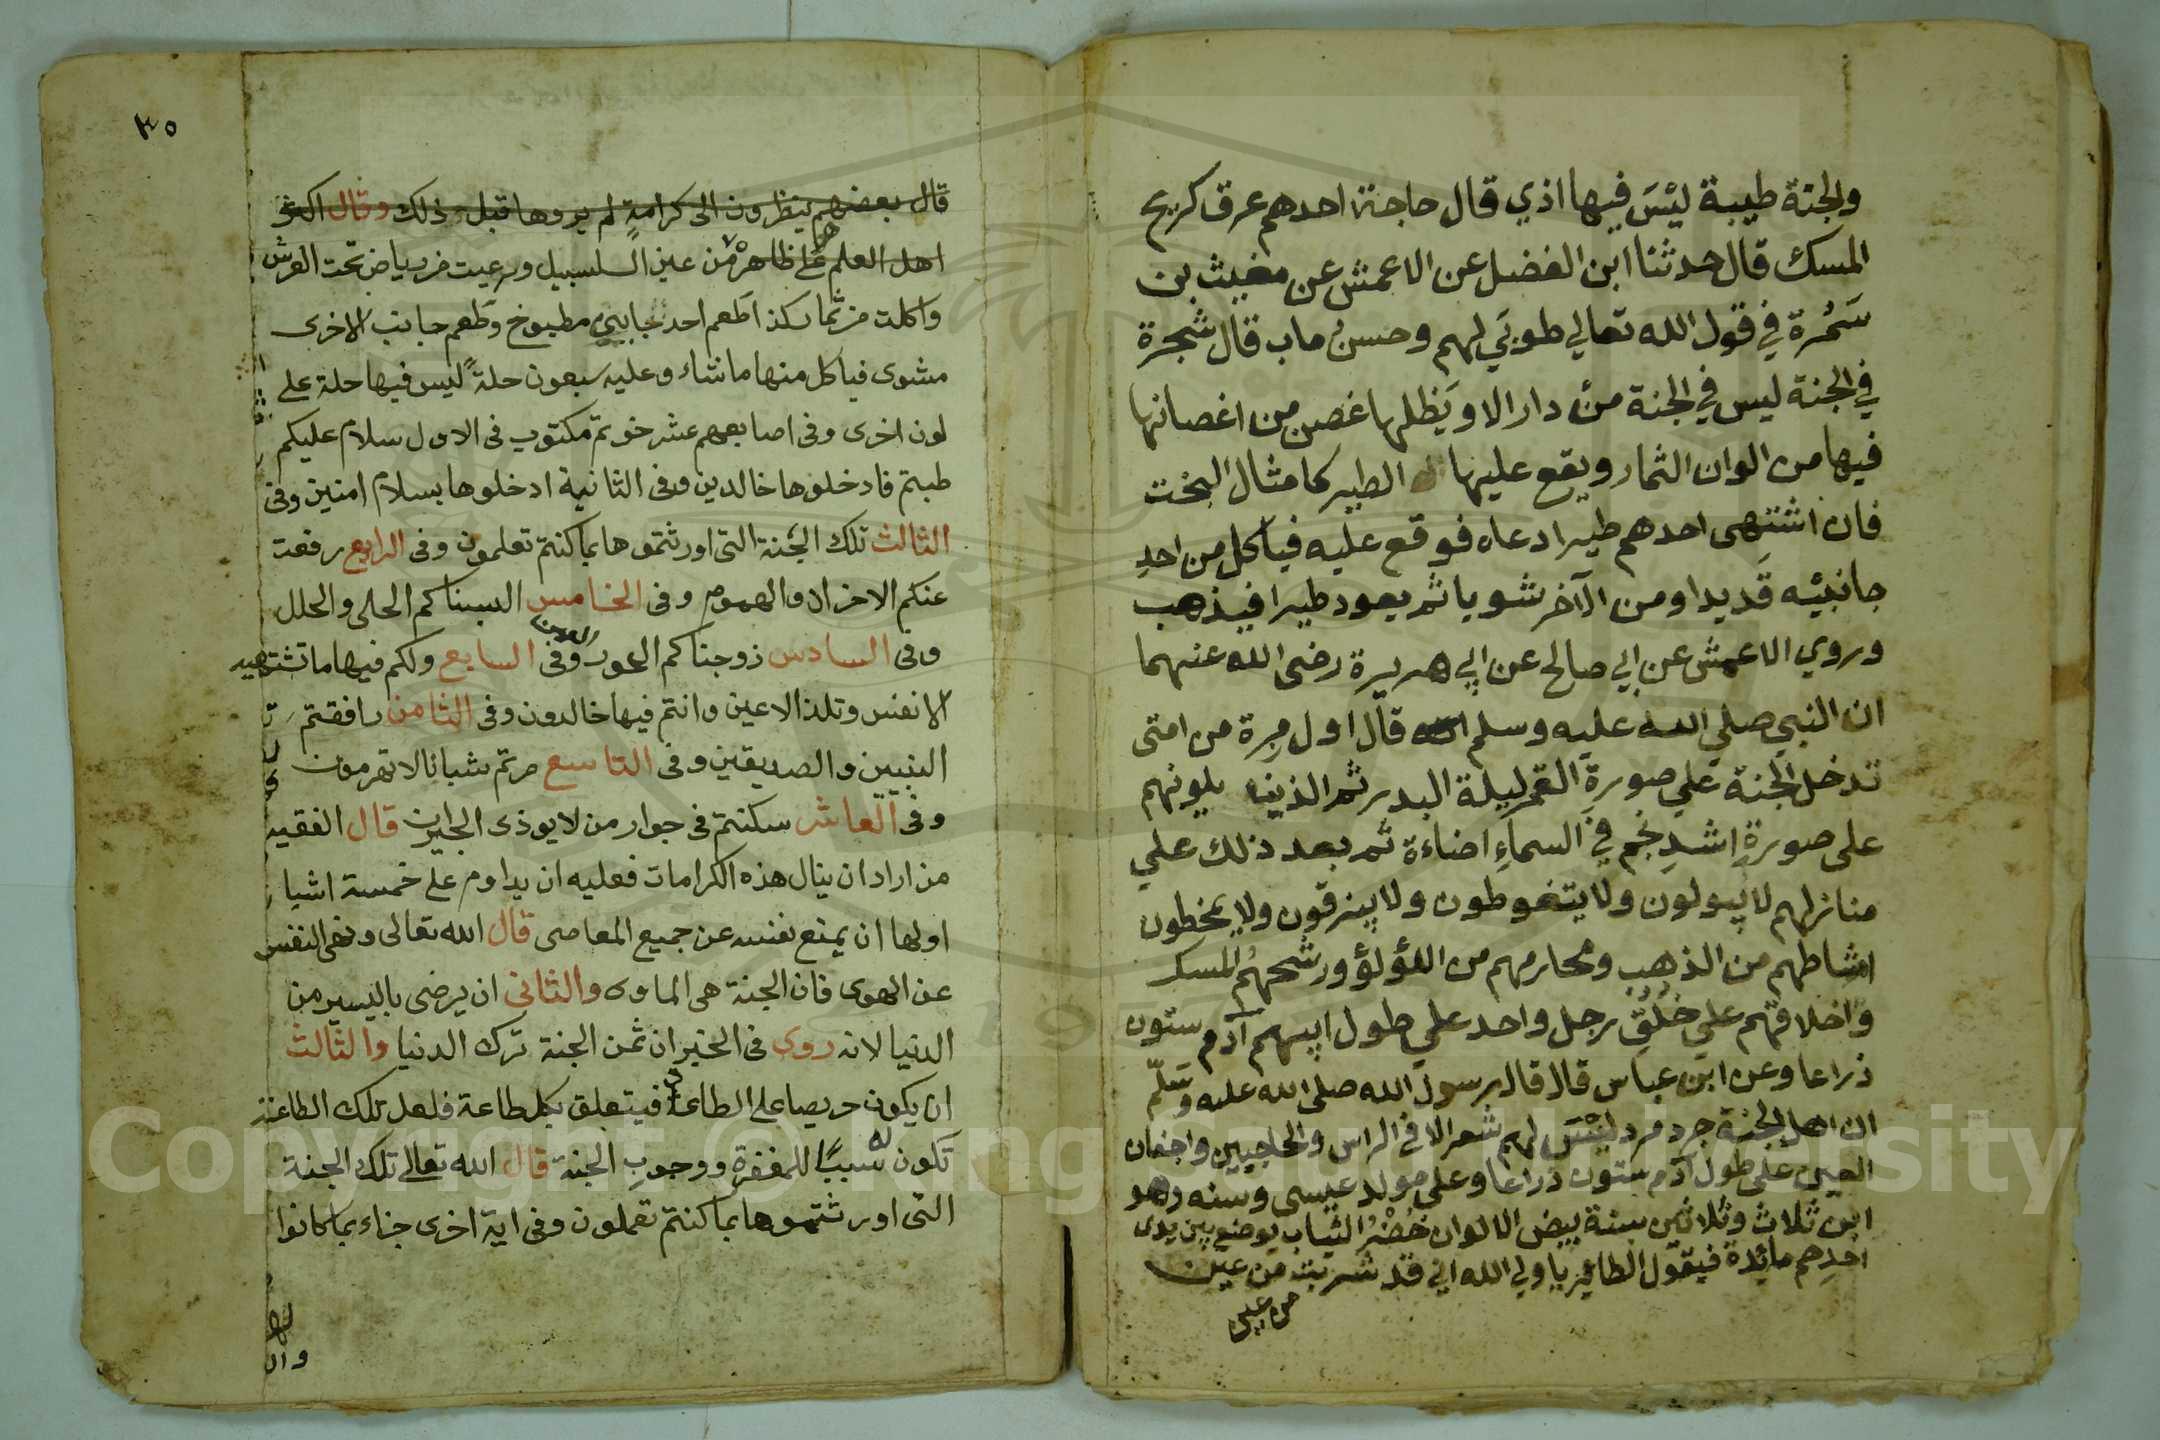 والجنة طيبة ليْسَ فيها اذي قال حاجتة احدهم عرق كريح
المسك قال حدثنا ابن الفضل عن الاعمش عن مغيث بن
سَمُرة في قول الله تعالي طوبَي لهم وحسن ماب قال شجرة
في الجنة ليس في الجنة من دار الا ويَظلها غصن من اغصانها
فيها من الوان الثمار ويقع عليها الطير كامثال البخت
فان اشتهى احدهم طيرا دعاه فوقع عليه فياكل من احد
جانبيْه قَديدا ومن الآخر شويا ثم يعود طيرا فيذهب
وروي الاعمش عن ابي صالح عن ابي هريرة رضى الله عنهما
ان النبي صلي الله عليه وسلم قال اول مرة من امتى
تدخل الجنة علي صورة القمر ليلة البدر ثم الذين يلونهم
على صورة اشد نجم في السماء اضاءة ثم بعد ذلك علي
منازلهم لا يبولون ولا يتغوطون ولا يبزقون ولا يمخطون
امشاطهم من الذهب ومحارمهم من اللؤلؤ ورشحهُم المسك
وَاخلاقهم علي خُلُقِ رجل واحد علي طول ابيهم آدم ستون
ذراعا وعن ابن عباس قال قال رسول الله صلى الله عليه وسَلّم
ان اهل الجنة جرد مرد ليْسَ لهم شعر الا في الراس والحاجبين واجفان
العين على طول آدم ستون ذراعا وعلى مولد عيسى وسنه وهو
ابن ثلاث وثلاثين سنة بيض الالوان خُضْرُ الثياب يوضع بين يدى
احدِهم مائِدة فيقول الطائير يا ولي الله اني قد شربت من عين
من عين
٣٥
قال بعضهم ينظرون الى كرامةٍ لم يروها قبل ذلك وقال اكثر
اهل العلم على ظاهرْ من عين السلسبيل ورعيت من رياض تحت العرش
واكلت من ثمار كذا طعم احد جابيي مطبوخ وطعم جانب الاخرى
مشوى فياكل منها ما شاء وعليه سبعون حلة ليس فيها حلة على
لون اخرى وفى اصابعهم عشر خوتم مكتوب فى الاول سلام عليكم
طبتم فادخلوها خالدين وفى الثانية ادخلوها بسلام امنين وفى
الثالث تلك الجنة التى اورثتموها بما كنتم تعلمون وفى الرابع رفعت
عنكم الاحزان والهموم وفى الخامس البسناكم الحلى والحلل
وفى السادس زوجناكم الحور العين وفى السابع ولكم فيها ما تشتهيه
الانفس وتلذ الاعين وانتم فيها خالدون وفى الثامن رافقتم
النبيين والصديقين وفى التاسع صرتم شبابا لا تهرمون
وفى العاشر سكنتم فى جوار من لا يوذى الجيران قال الفقيه
من اراد ان ينال هذه الكرامات فعليه ان يداوم على خمسة اشيا
اولها ان يمنع نفسه عن جميع المعاصى قال الله تعالى ونهى النفس
عن الهوى فان الجنة هى الماوى والثانى ان يرضى باليسير من
الدنيا لانه روى فى الخبر ان ثمن الجنة ترك الدنيا والثالث
ان يكون حريصا على الطاعة فيتعلق بكل طاعة فلعل تلك الطاعة
تكون له سببًا للمغفرة ووجوب الجنة قال الله تعالى تلك الجنة
التى اورثتموها بما كنتم تعملون وفى اية اخرى جزاء بما كانوا
Copyright © King Saud University